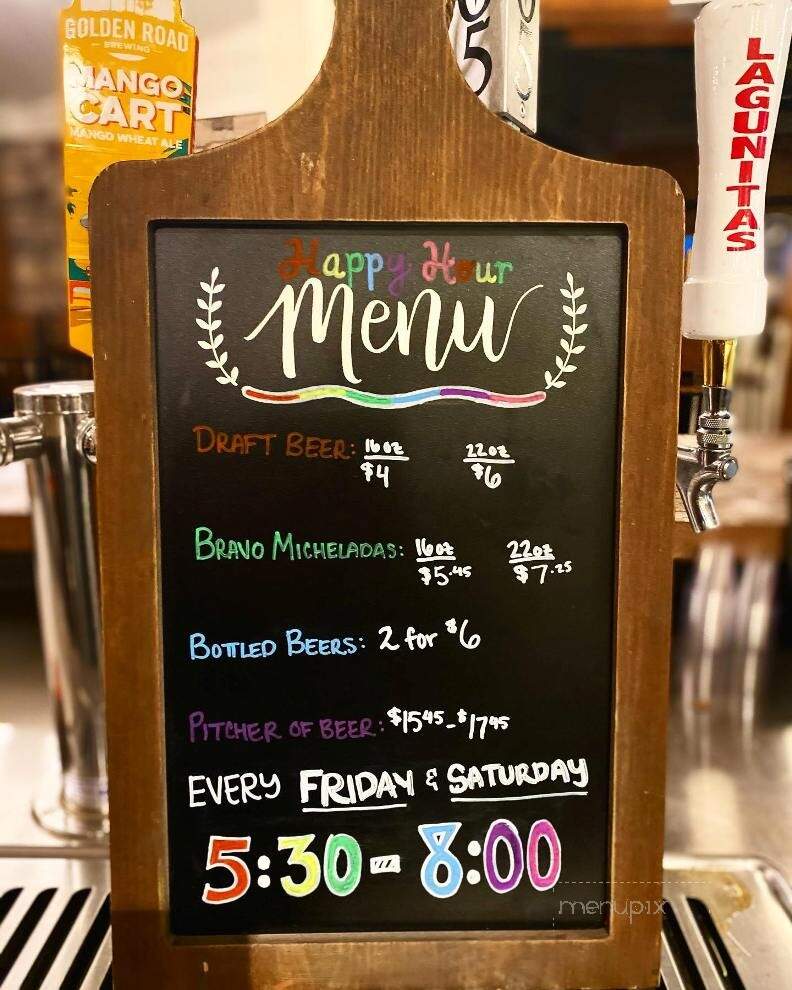 GOLDEN ROAD
BREWING
MANGO
CART
MANGO WHEAT ALE
5
LAGUNITAS
Happy Hour
Menu
DRAFT BEER: 16 oz $4 22 oz $6
BRAVO MICHELADAS: 16 oz $5.45 22 oz $7.25
BOTTLED BEERS: 2 for $6
PITCHER OF BEER: $15.45 - $17.95
EVERY FRIDAY & SATURDAY
5:30 - 8:00
menupix